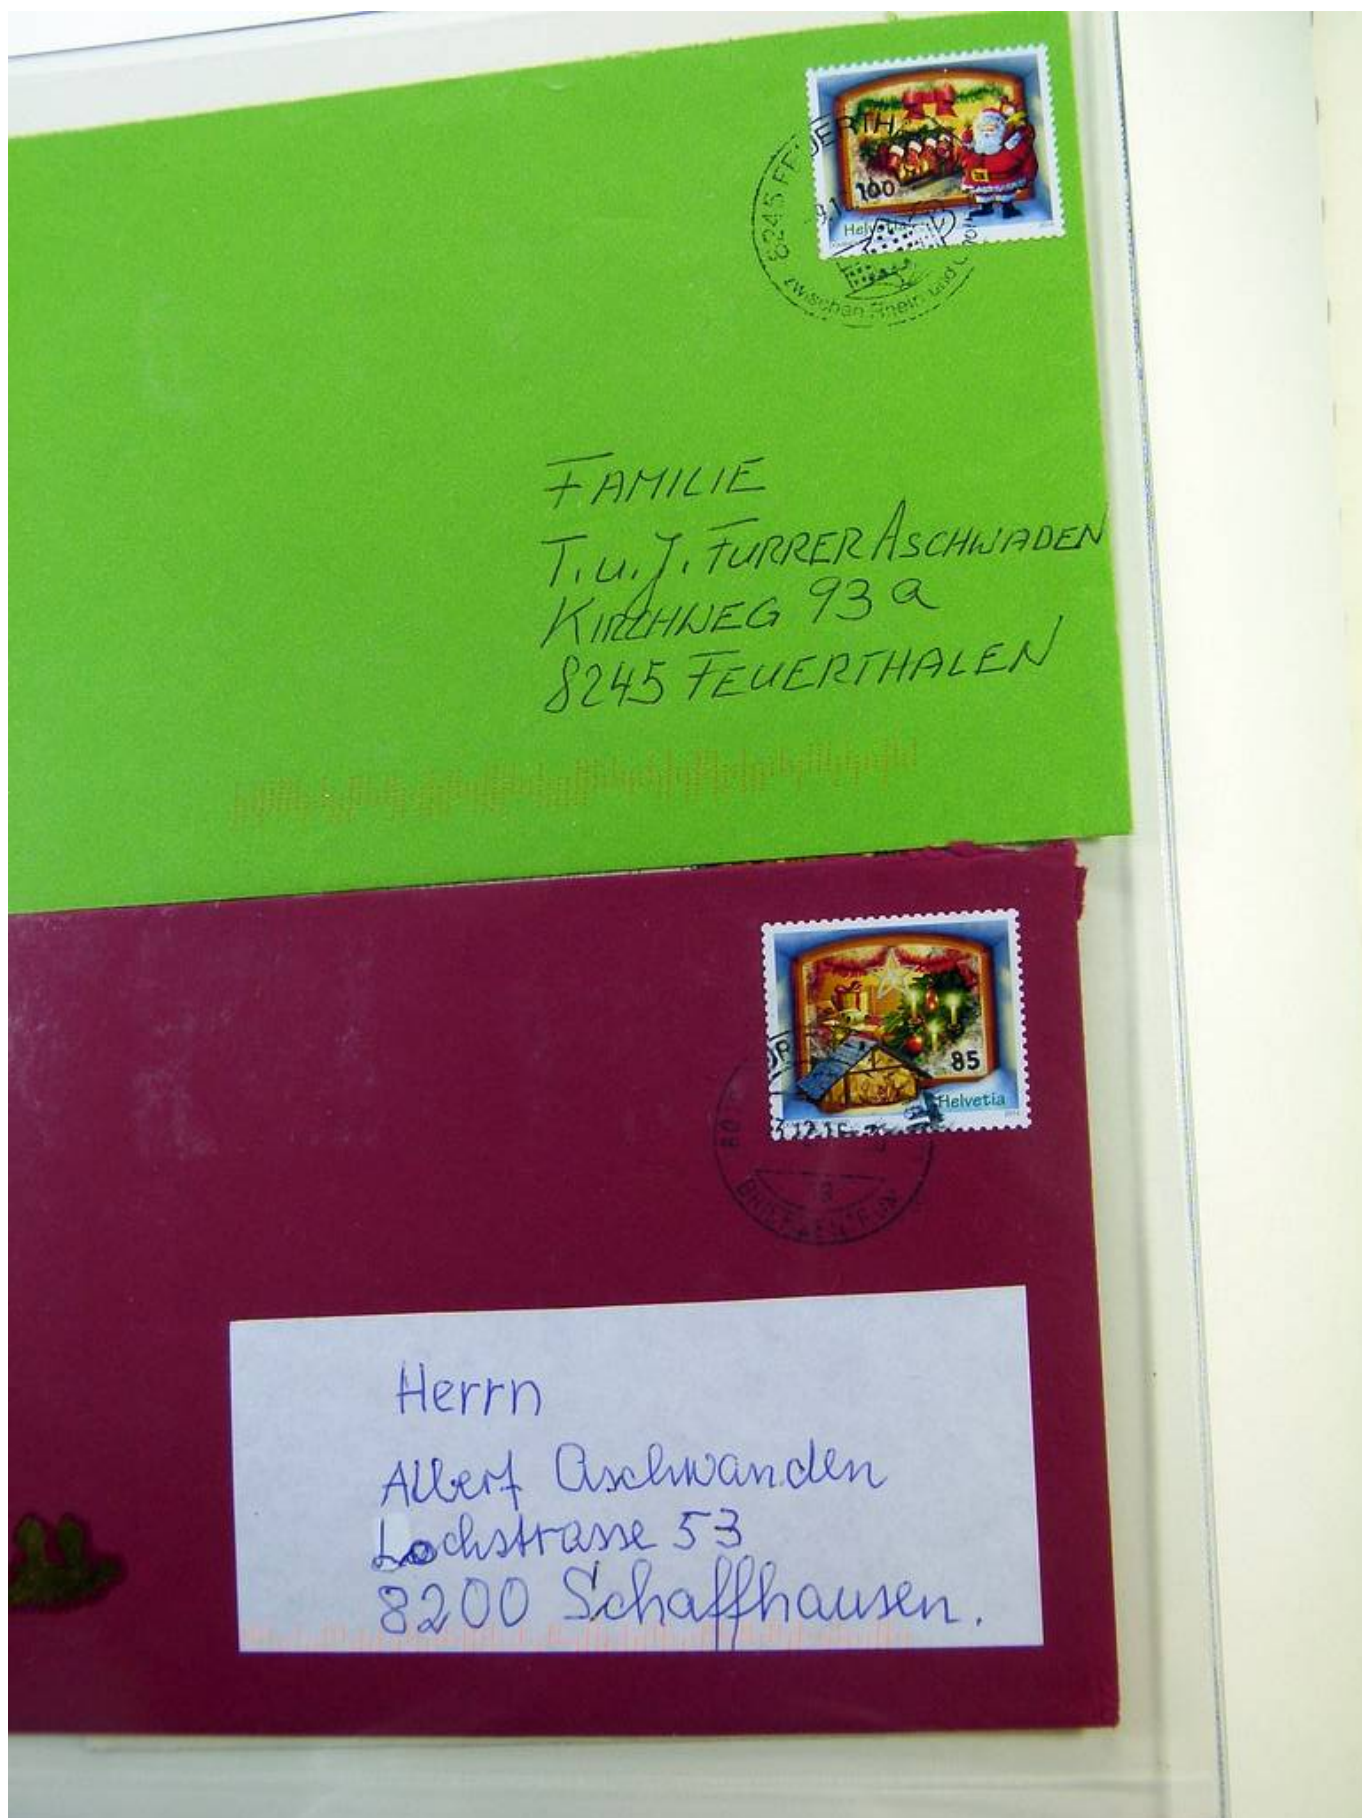 8245 FEUERTH
100
Helvetia
zwischen Rhein und
FAMILIE
T. u. J. FURRER ASCHWADEN
KIRCHWEG 93 a
8245 FEUERTHALEN
85
Helvetia
Herrn
Albert Aschwanden
Lochstrasse 53
8200 Schaffhausen.